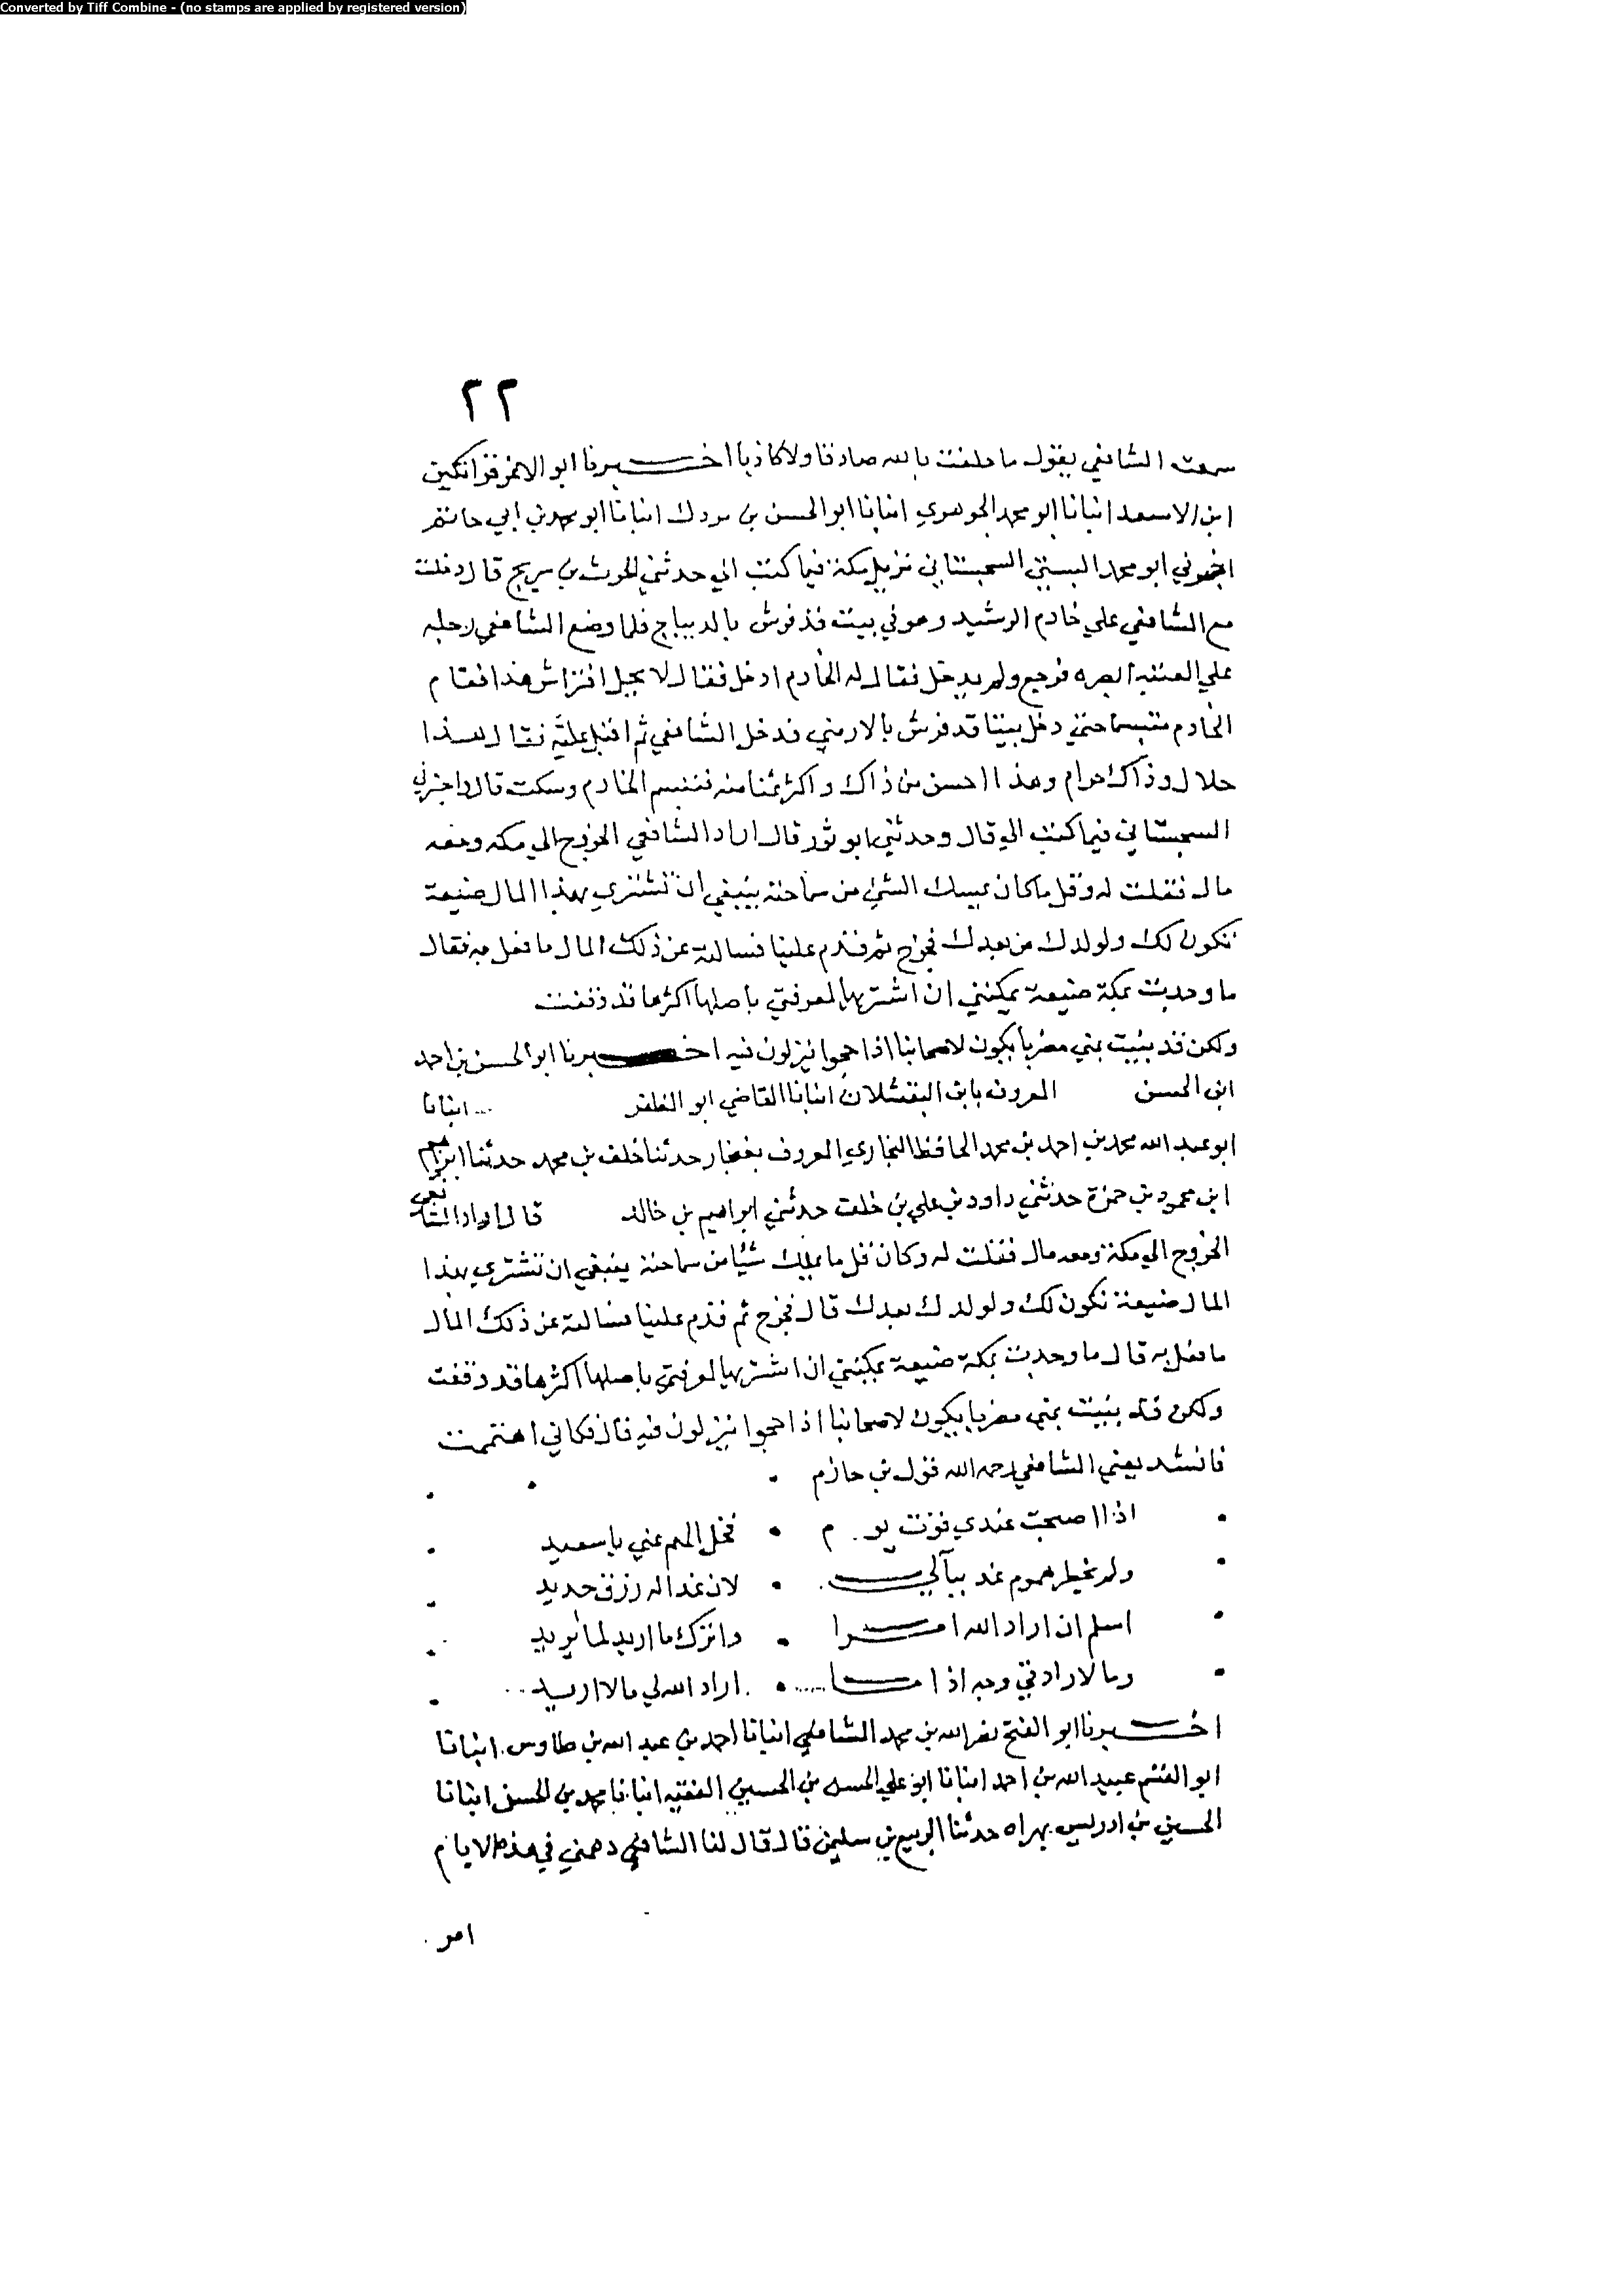 Converted by Tiff Combine - (no stamps are applied by registered version)
٢٢
سمعت الشافعي يقول ما حلفت بالله صادقا ولا كاذبا اخبرنا ابو الاغر قراتكين
ابن الاسعد انبانا ابو محمد الجوهري انبانا ابو الحسن بن مردك انبانا ابو محمد بن ابي حاتم
اخبرني ابو محمد البستي السجستاني نزيل مكة فيما كتب الي حدثني الحرث بن سريج قال دخلت
مع الشافعي علي خادم الرشيد وهو في بيت قد فرش بالديباج فلما وضع الشافعي رجله
علي العتبة ابصره فرجع ولم يدخل فقال له الخادم ادخل فقال لا يحل افتراش هذا فقام
الخادم متبسما حتي دخل بيتا قد فرش بالارمني فدخل الشافعي ثم اقبل عليه فقال هذا
حلال وذاك حرام وهذا احسن من ذاك واكثر ثمنا منه فتبسم الخادم وسكت قال واخبرني
السجستاني فيما كتب الي قال وحدثني ابو ثور قال اراد الشافعي الخروج الي مكه ومعه
مال فقلت له وقل ما كان يمسك الشئ من سماحته ينبغي ان تشتري بهذا المال ضيعة
تكون لك ولولدك من بعدك فخرج ثم قدم علينا فسالته عن ذلك المال ما فعل به فقال
ما وجدت بمكة ضيعة يمكنني ان اشتريها لمعرفتي باصلها اكثرها قد وقفت
ولكن قد بنيت بمني مضربا يكون لاصحابنا اذا حجوا ينزلون فيه اخبرنا ابو الحسن بن احمد
ابن الحسن المعروف بابن البقشلان انبانا القاضي ابو المظفر انبانا
ابو عبد الله محمد بن احمد بن محمد الحافظ البخاري المعروف بغنجار حدثنا خلف بن محمد حدثنا ابراهيم
ابن محمود بن حمزة حدثني داود بن علي بن خلف حدثني ابراهيم بن خالد قال اراد الشافعي
الخروج الي مكة ومعه مال فقلت له وكان قل ما يملك شيئا من سماحته ينبغي ان تشتري بهذا
المال ضيعة تكون لك ولولدك بعدك قال فخرج ثم قدم علينا فسالته عن ذلك المال
ما فعل به قال ما وجدت بمكة ضيعة يمكنني ان اشتريها لمعرفتي باصلها اكثرها قد وقفت
ولكن قد بنيت بمني مضربا يكون لاصحابنا اذا حجوا ينزلون فيه قال فكاني اهتممت
فانشد يعني الشافعي رحمه الله قول بن حازم
اذا اصبحت عندي قوت يوم • فخل الهم عني يا سعيد
ولم تخطر هموم غد ببالي • لان غدا له رزق جديد
اسلم ان اراد الله امرا • واترك ما اريد لما يريد
وما لارادتي وجه اذا ما • اراد الله لي ما لا اريد
اخبرنا ابو الفتح نصر الله بن محمد الشافعي انبانا احمد بن عبد الله بن طاوس انبانا
ابو القسم عبيد الله بن احمد انبانا ابو علي الحسن بن الحسين الفقيه انبانا محمد بن الحسن انبانا
الحسين بن ادريس بهراه حدثنا الربيع بن سليمن قال قال لنا الشافعي دهمني في هذه الايام
امر